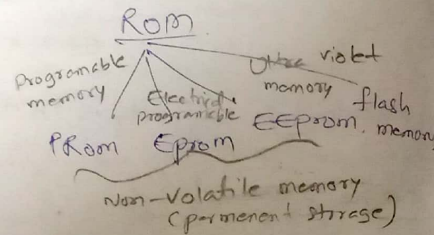 ROM
Programable
memory
Electrical
programable
Ultra violet
memory
flash
memory
PROM
EPROM
EEPROM
Non-volatile memory
(permenent storage)